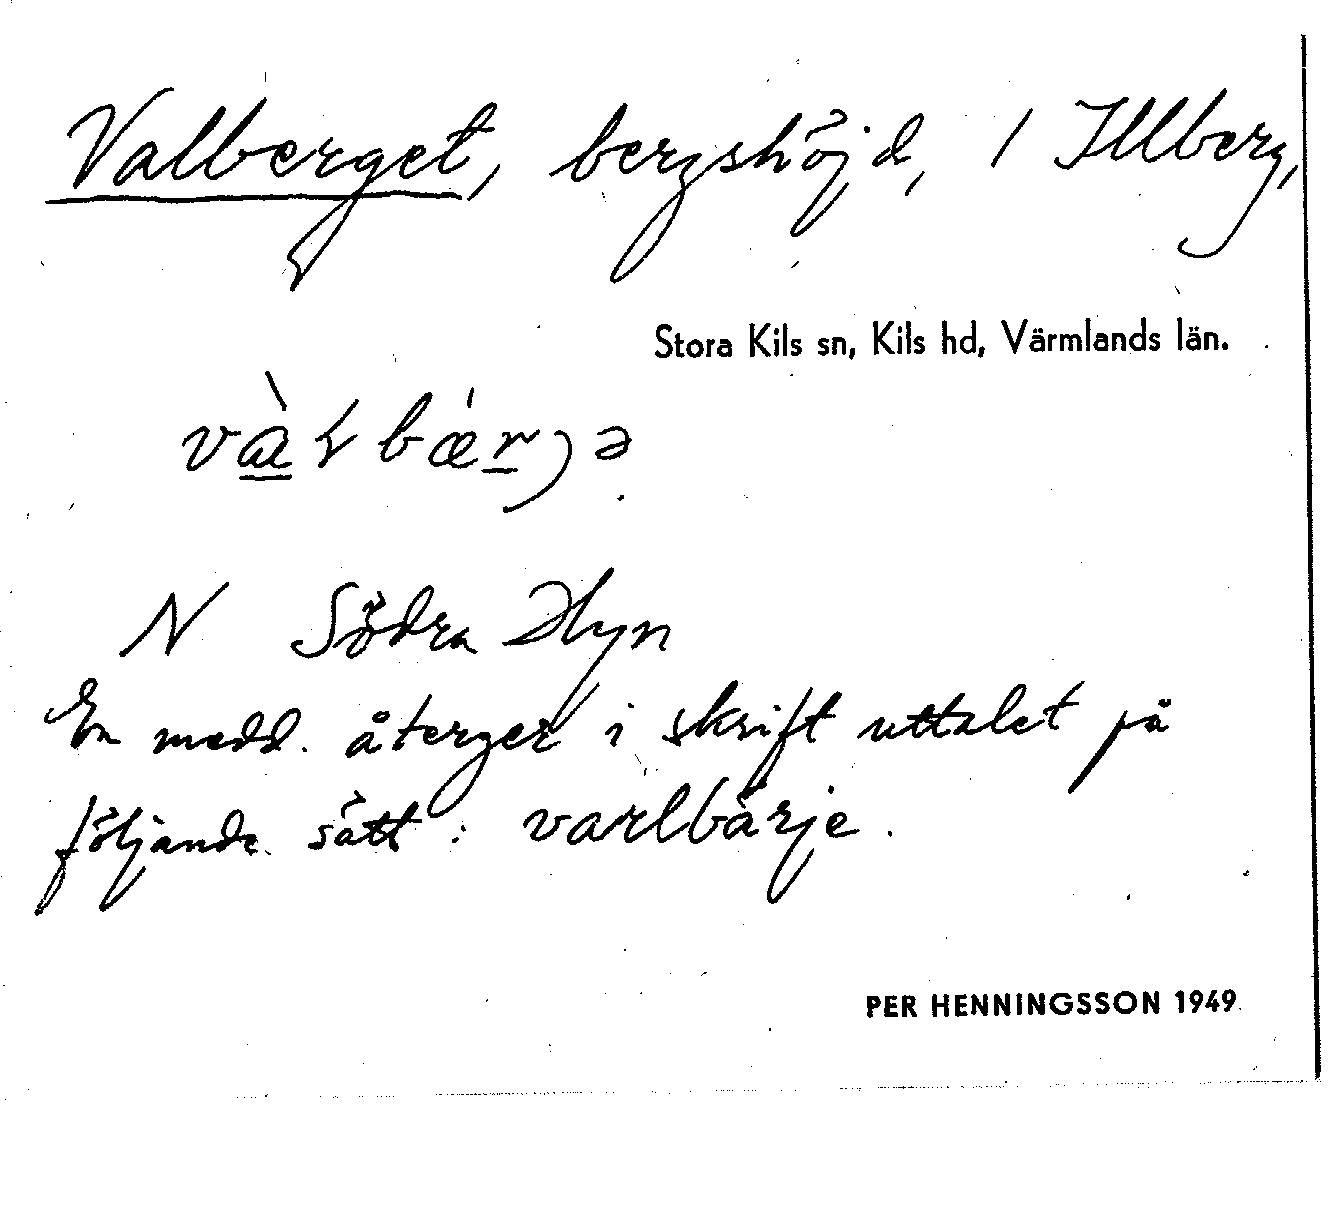 Valberget, bergshöjd, 1 Illberg,
Stora Kils sn, Kils hd, Värmlands län.
và̱ɽbǽṟjə
N Södra Hyn
En medd. återger i skrift uttalet på
följande sätt: varlbärje.
PER HENNINGSSON 1949